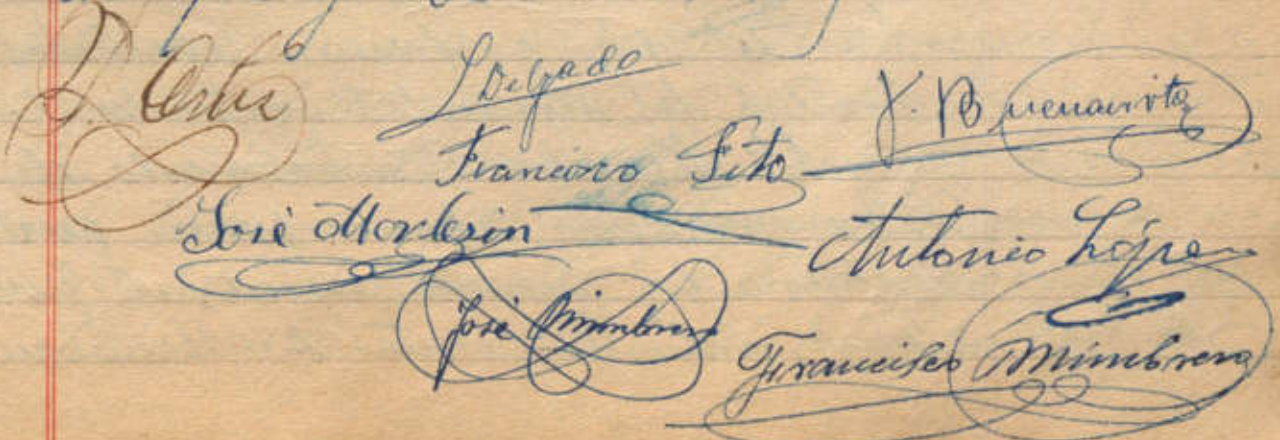 L Delgado
J. Buenavista
Francisco Fito
José Morlesin
Antonio López
José Mimbrera
Francisco Mimbrera